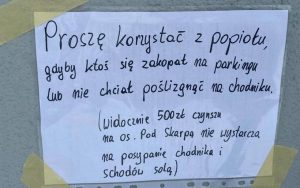 Proszę korzystać z popiołu,
gdyby ktoś się zakopał na parkingu
lub nie chciał poślizgnąć na chodniku.
(widocznie 500zł czynszu
na os. Pod Skarpą nie wystarcza
na posypanie chodnika i
schodów solą)